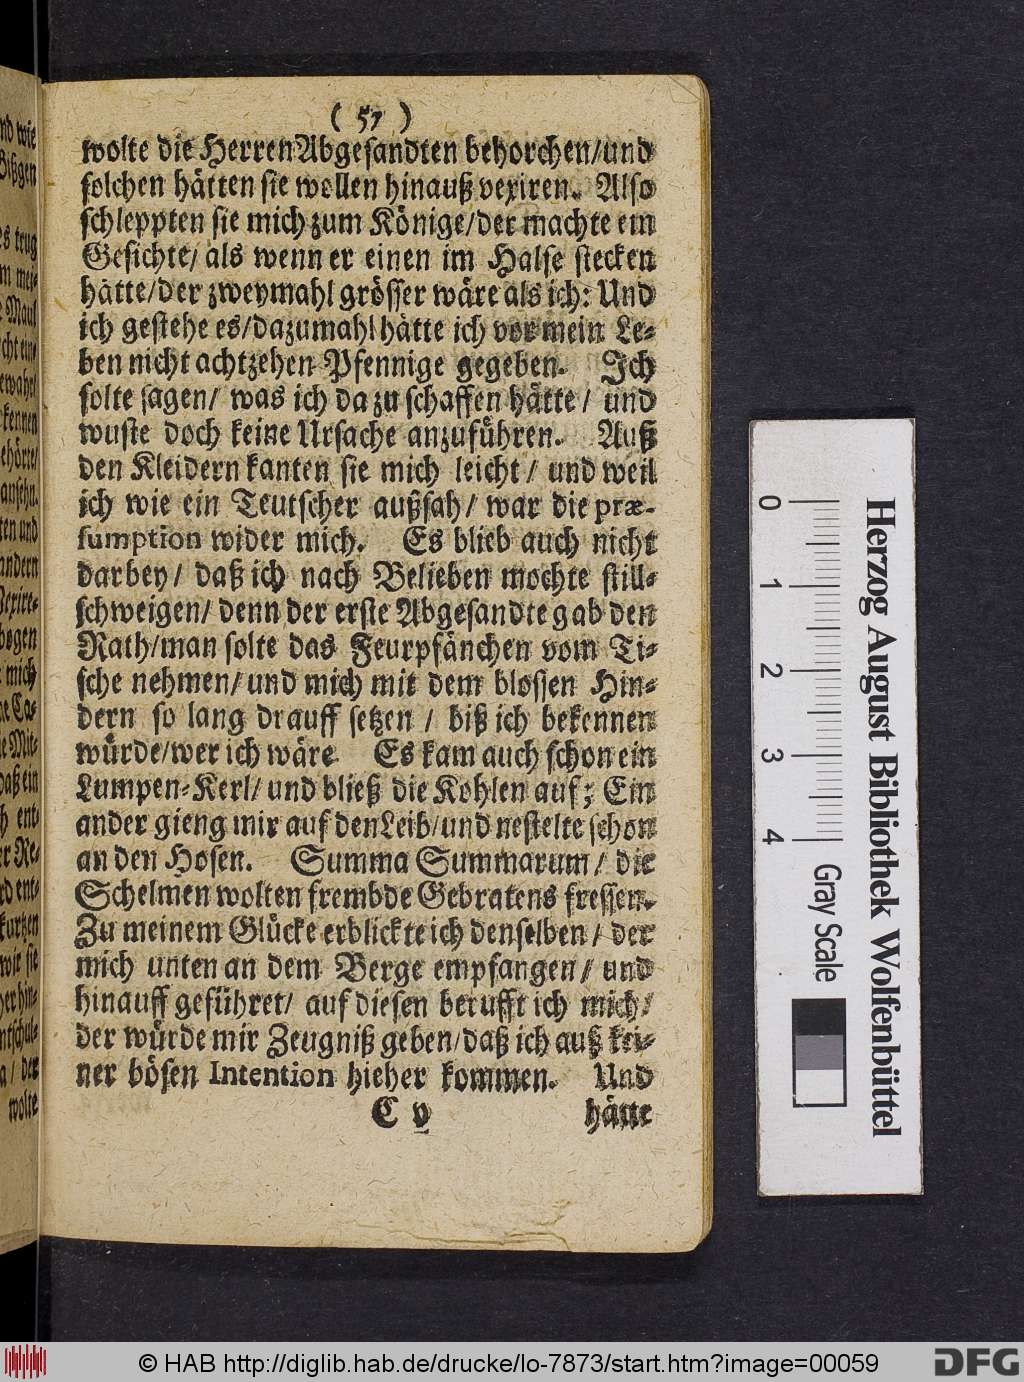 ( 57 )
wolte die Herren Abgesandten behorchen/und
solchen hätten sie wollen hinauß vexiren. Also
schleppten sie mich zum Könige/der machte ein
Gesichte/ als wenn er einen im Halse stecken
hätte/der zweymahl grösser wäre als ich: Und
ich gestehe es/dazumahl hätte ich vor mein Le-
ben nicht achtzehen Pfennige gegeben. Ich
solte sagen/ was ich da zu schaffen hätte/ und
wuste doch keine Ursache anzuführen. Auß
den Kleidern kanten sie mich leicht/ und weil
ich wie ein Teutscher außsah/ war die præ-
sumption wider mich. Es blieb auch nicht
darbey/ daß ich nach Belieben mochte still-
schweigen/ denn der erste Abgesandte gab den
Rath/man solte das Feurpfänchen vom Ti-
sche nehmen/und mich mit dem blossen Hin-
dern so lang drauff setzen/ biß ich bekennen
würde/wer ich wäre Es kam auch schon ein
Lumpen-Kerl/ und bließ die Kohlen auf; Ein
ander gieng mir auf den Leib/und nestelte schon
an den Hosen. Summa Summarum/ die
Schelmen wolten frembde Gebratens fressen.
Zu meinem Glücke erblickte ich denselben/ der
mich unten an dem Berge empfangen/ und
hinauff geführet/ auf diesen berufft ich mich/
der würde mir Zeugniß geben/daß ich auß kei-
ner bösen Intention hieher kommen. Und
C v hätte
nd wie
es trug
Maul
cht ein-
kennen
ehörte/
ansehn.
ten und
andern
Vexire-
bogen
mich
ne Ca-
e Mit-
daß ein
h ent-
er Re-
rd ent-
kurtzen
wir sie
her hin-
ntschul-
a/ der
wolte
0 1 2 3 4
Herzog August Bibliothek Wolfenbüttel
Gray Scale
© HAB http://diglib.hab.de/drucke/lo-7873/start.htm?image=00059
DFG